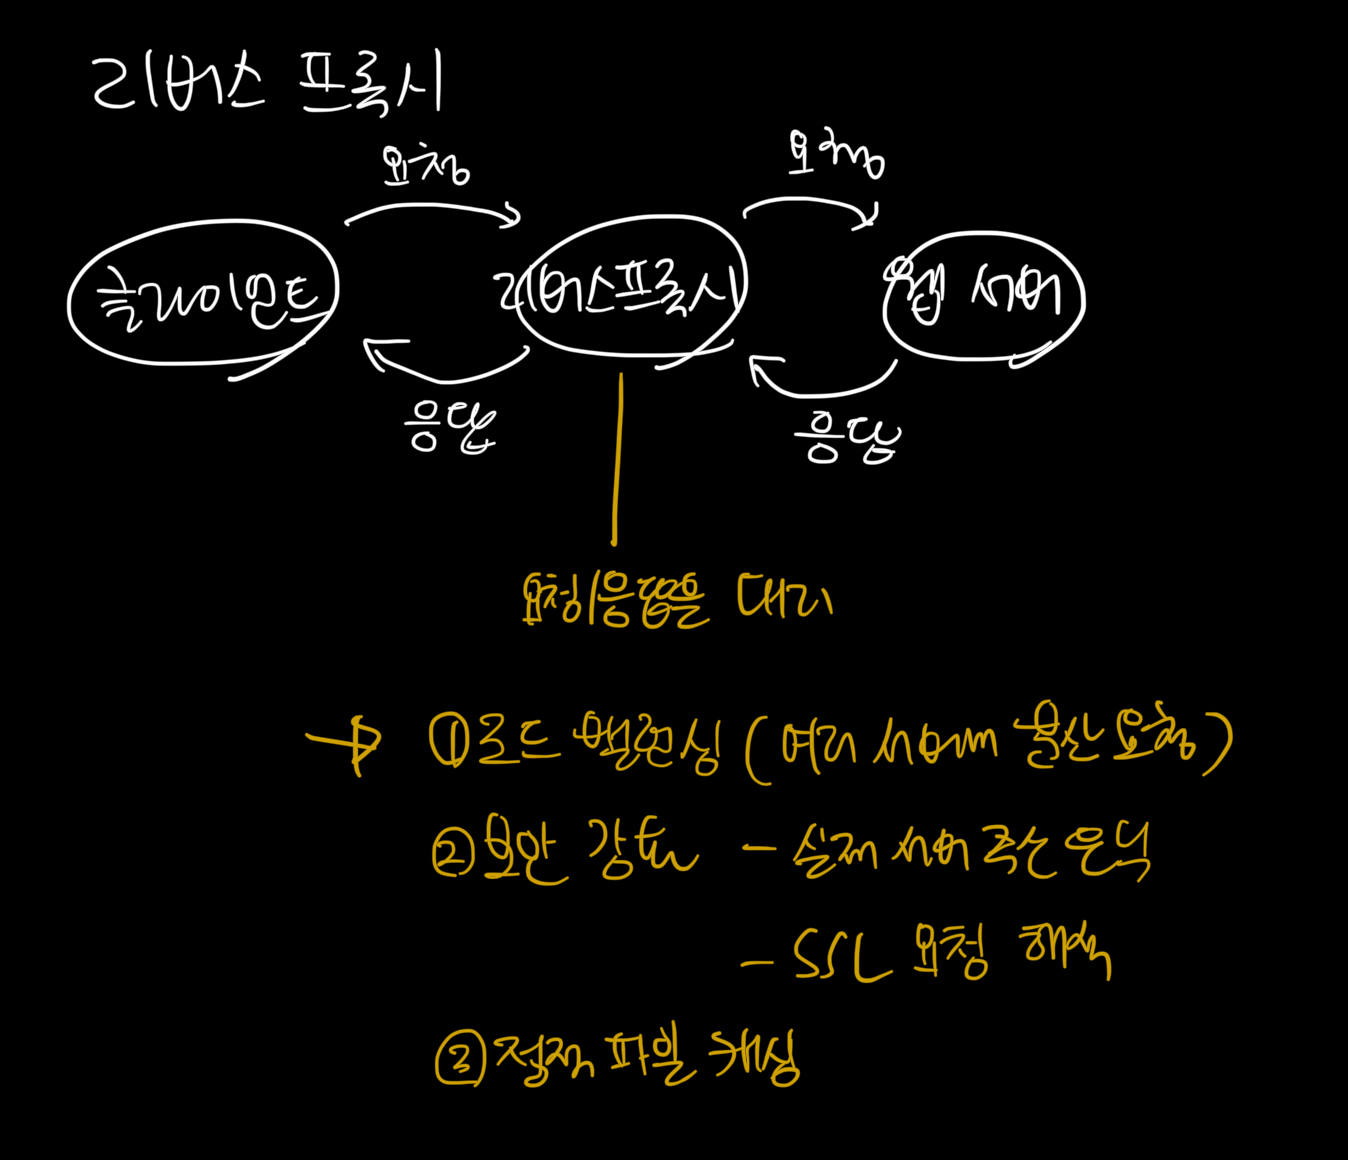 리버스 프록시
요청
요청
클라이언트
리버스프록시
웹 서버
응답
응답
요청/응답을 대리
① 로드 밸런싱 (여러 서버에 분산 요청)
② 보안 강화 - 실제 서버 주소 은닉
- SSL 요청 해석
③ 정적 파일 캐싱